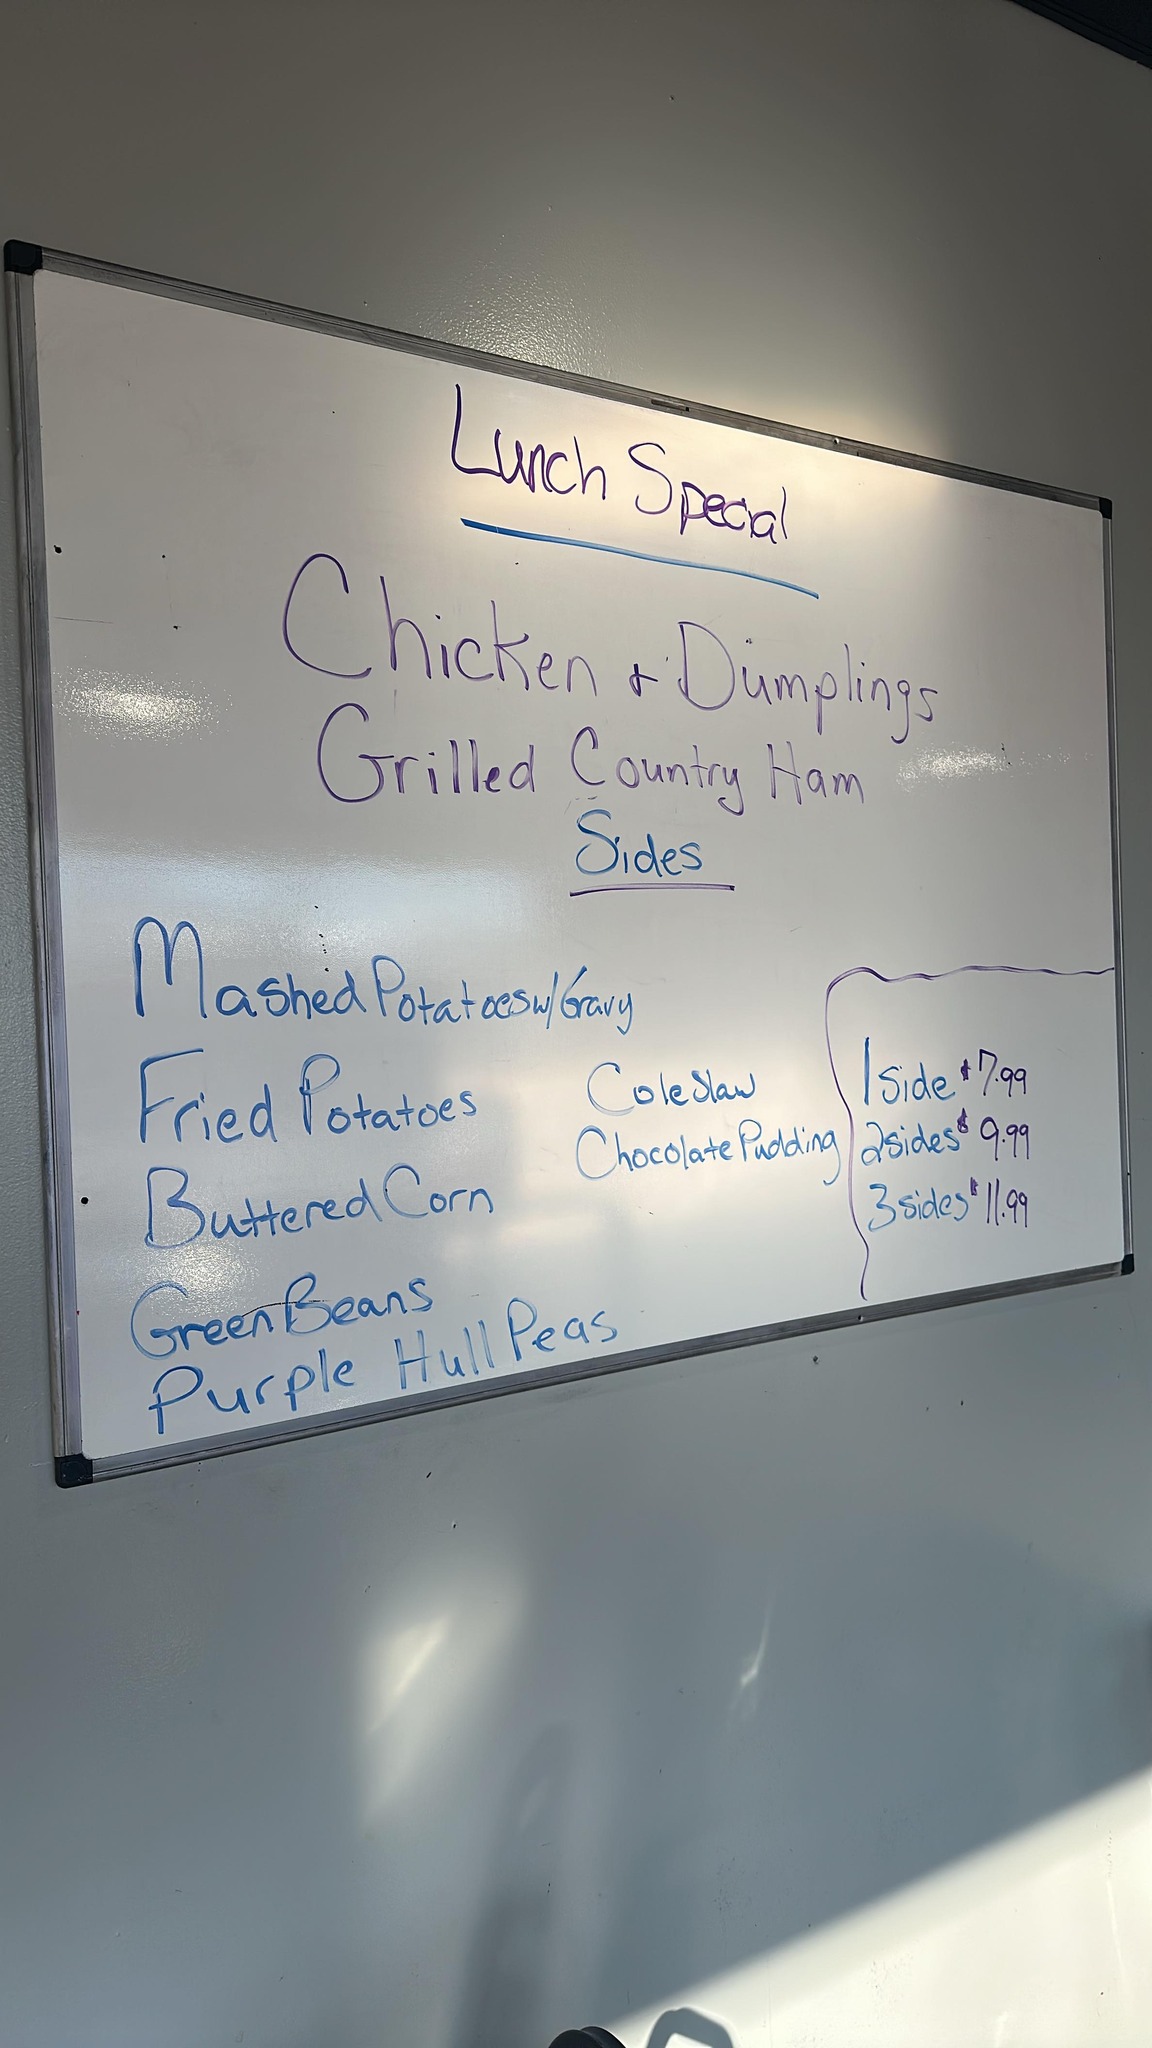 Lunch Special
Chicken + Dumplings
Grilled Country Ham
Sides
Mashed Potatoes w/ Gravy
Fried Potatoes
Buttered Corn
Green Beans
Purple Hull Peas
Cole Slaw
Chocolate Pudding
1 side $7.99
2 sides $9.99
3 sides $11.99